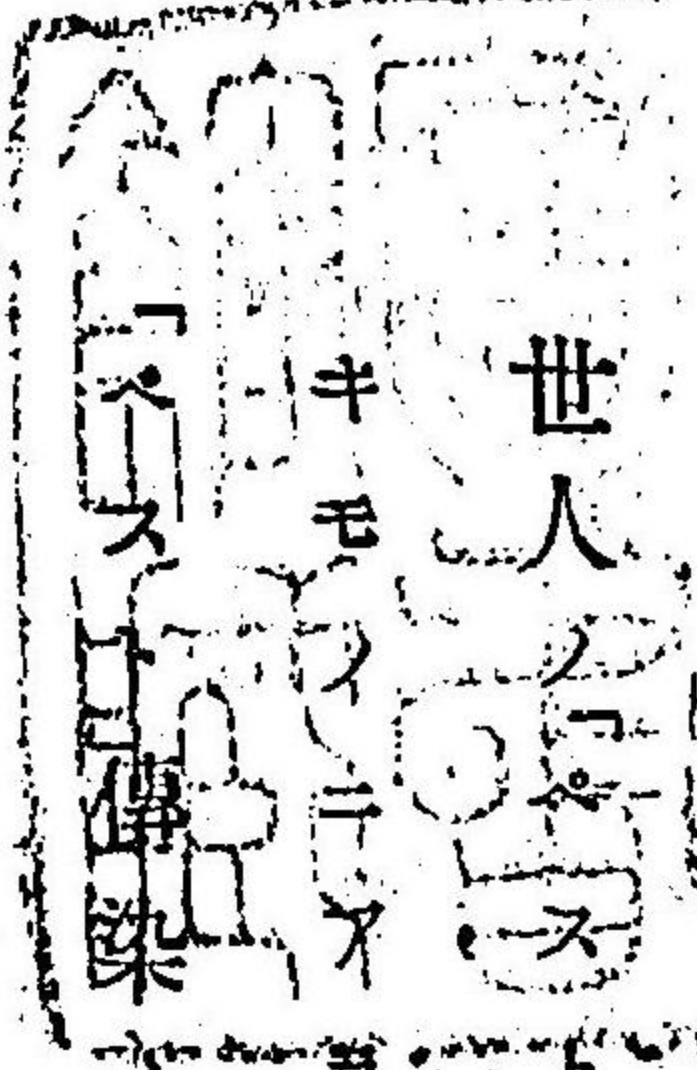 世人ノ「ペス
キモノニア
「ペスト」傳染